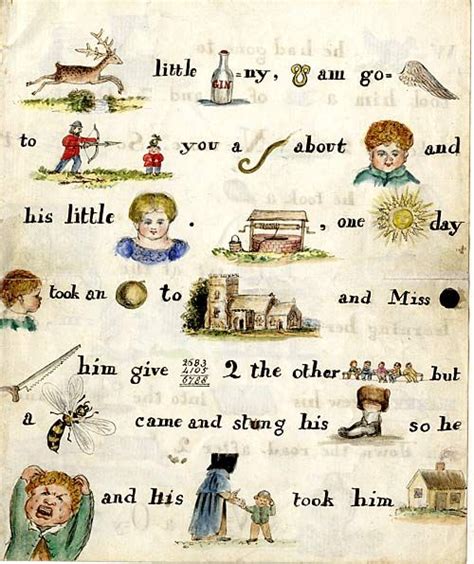 little GIN -ny, am go-
to you a about and
his little . , one day
took an to and Miss
him give 2583 4105 6788 2 the other but
a came and stung his so he
and his took him